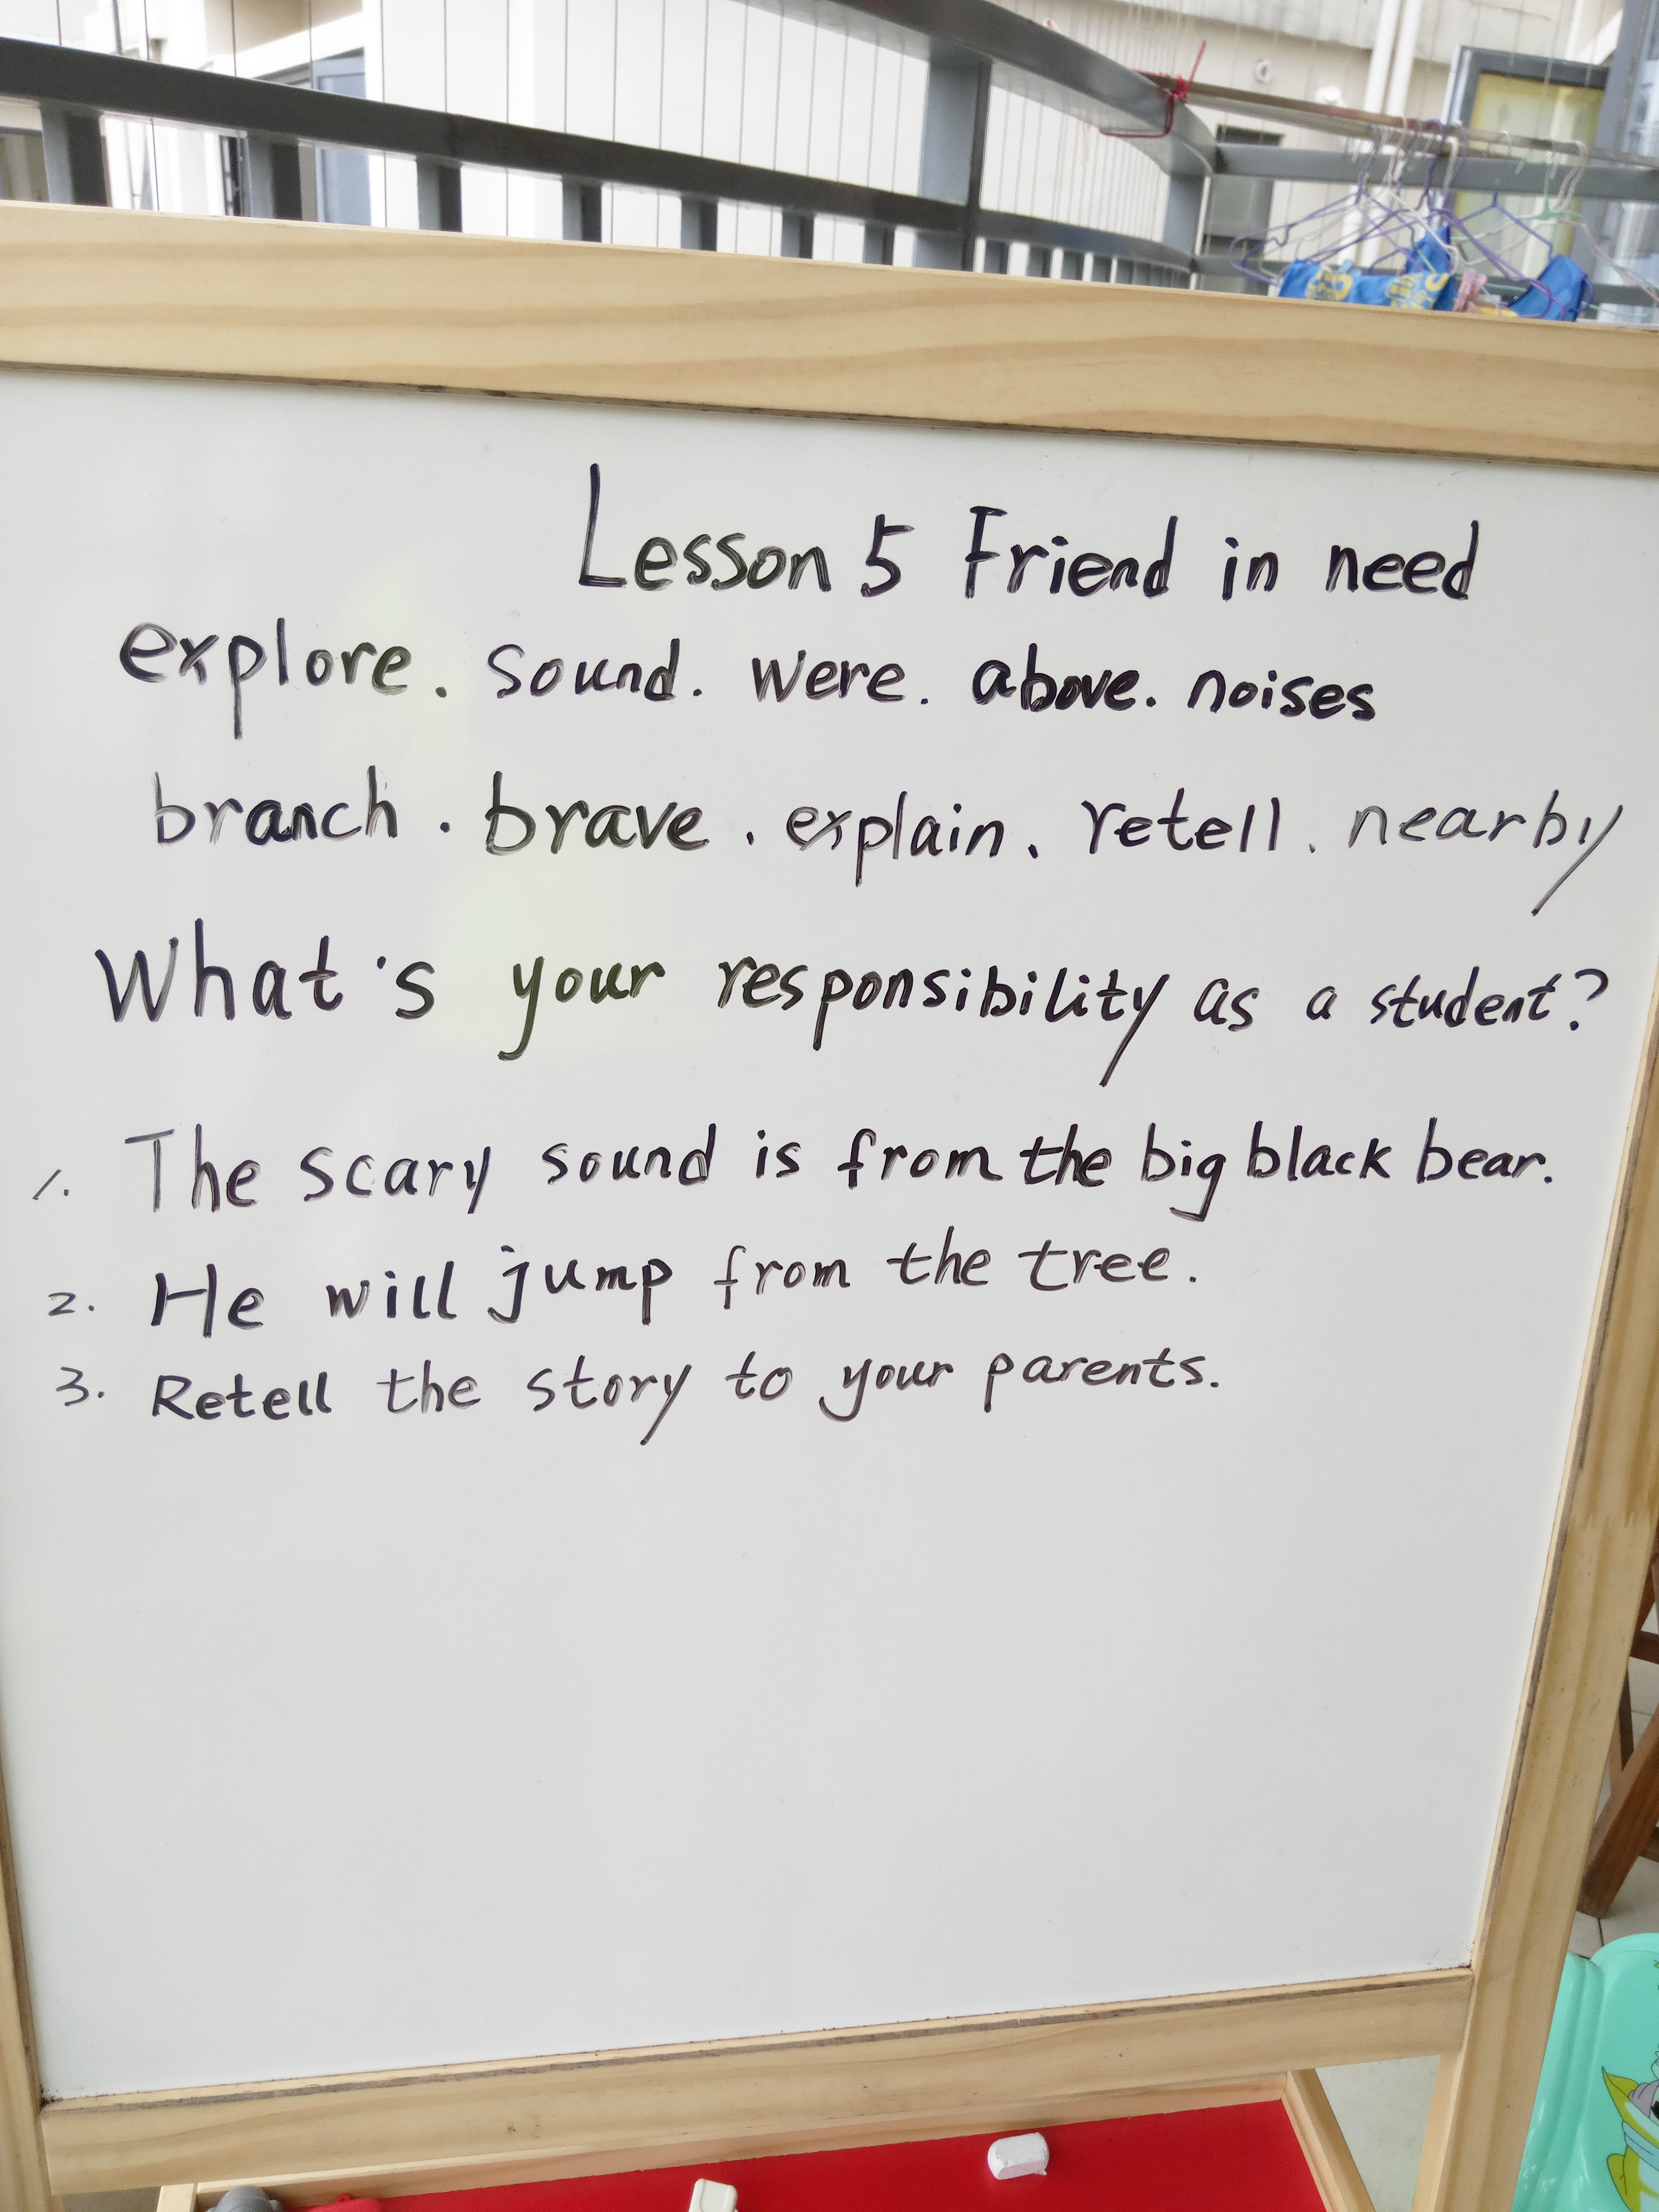 Lesson 5 Friend in need
explore. sound. were. above. noises
branch. brave. explain. retell. nearby
What's your responsibility as a student?
1. The scary sound is from the big black bear.
2. He will jump from the tree.
3. Retell the story to your parents.